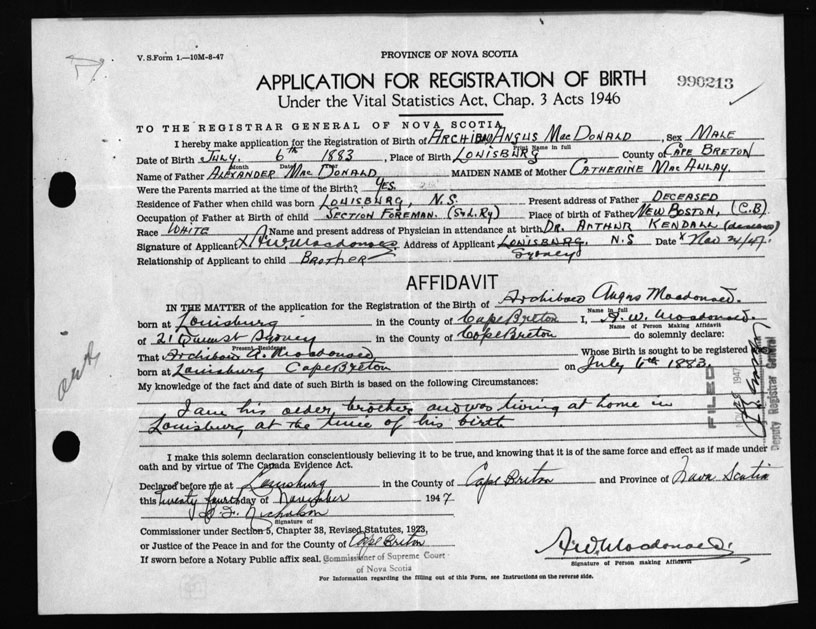 V. S. Form 1.—10M-8-47
PROVINCE OF NOVA SCOTIA
APPLICATION FOR REGISTRATION OF BIRTH
990213
Under the Vital Statistics Act, Chap. 3 Acts 1946
TO THE REGISTRAR GENERAL OF NOVA SCOTIA
I hereby make application for the Registration of Birth of ARCHIBALD ANGUS MACDONALD, Sex MALE
Print Name in full
Date of Birth JULY. 6th 1883, Place of Birth LOUISBURG County of CAPE BRETON
Month Date Year
Name of Father ALEXANDER MACDONALD MAIDEN NAME of Mother CATHERINE MACAULAY.
Were the Parents married at the time of the Birth? YES
Residence of Father when child was born LOUISBURG, N.S. Present address of Father DECEASED
Occupation of Father at Birth of child SECTION FOREMAN. (S&L.Ry) Place of birth of Father NEW BOSTON, (C.B)
Race WHITE Name and present address of Physician in attendance at birth DR. ARTHUR KENDALL (deceased)
Signature of Applicant X A.W. Macdonald Address of Applicant LOUISBURG, N.S Date X Nov 24/47.
Sydney
Relationship of Applicant to child BROTHER
AFFIDAVIT
IN THE MATTER of the application for the Registration of the Birth of Archibald Angus Macdonald.
Name in full
born at Louisburg in the County of Cape Breton I, A. W. Macdonald.
Name of Person Making Affidavit
of 21 Sydney in the County of Cape Breton do solemnly declare:
Present Residence
That Archibald A. Macdonald Whose Birth is sought to be registered
born at Louisburg Cape Breton on July 6th 1883
My knowledge of the fact and date of such Birth is based on the following Circumstances:
I am his older brother and was living at home in
Louisburg at the time of his birth
FILED
1947
Deputy Registrar General
I make this solemn declaration conscientiously believing it to be true, and knowing that it is of the same force and effect as if made under
oath and by virtue of The Canada Evidence Act.
Declared before me at Louisburg in the County of Cape Breton and Province of Nova Scotia
this Twenty fourth day of November 1947
F. Nicholson
Signature of
Commissioner under Section 5, Chapter 38, Revised Statutes, 1923,
or Justice of the Peace in and for the County of Cape Breton
A.W. Macdonald.
If sworn before a Notary Public affix seal. Commissioner of Supreme Court
of Nova Scotia
Signature of Person making Affidavit
For Information regarding the filling out of this Form, see Instructions on the reverse side.